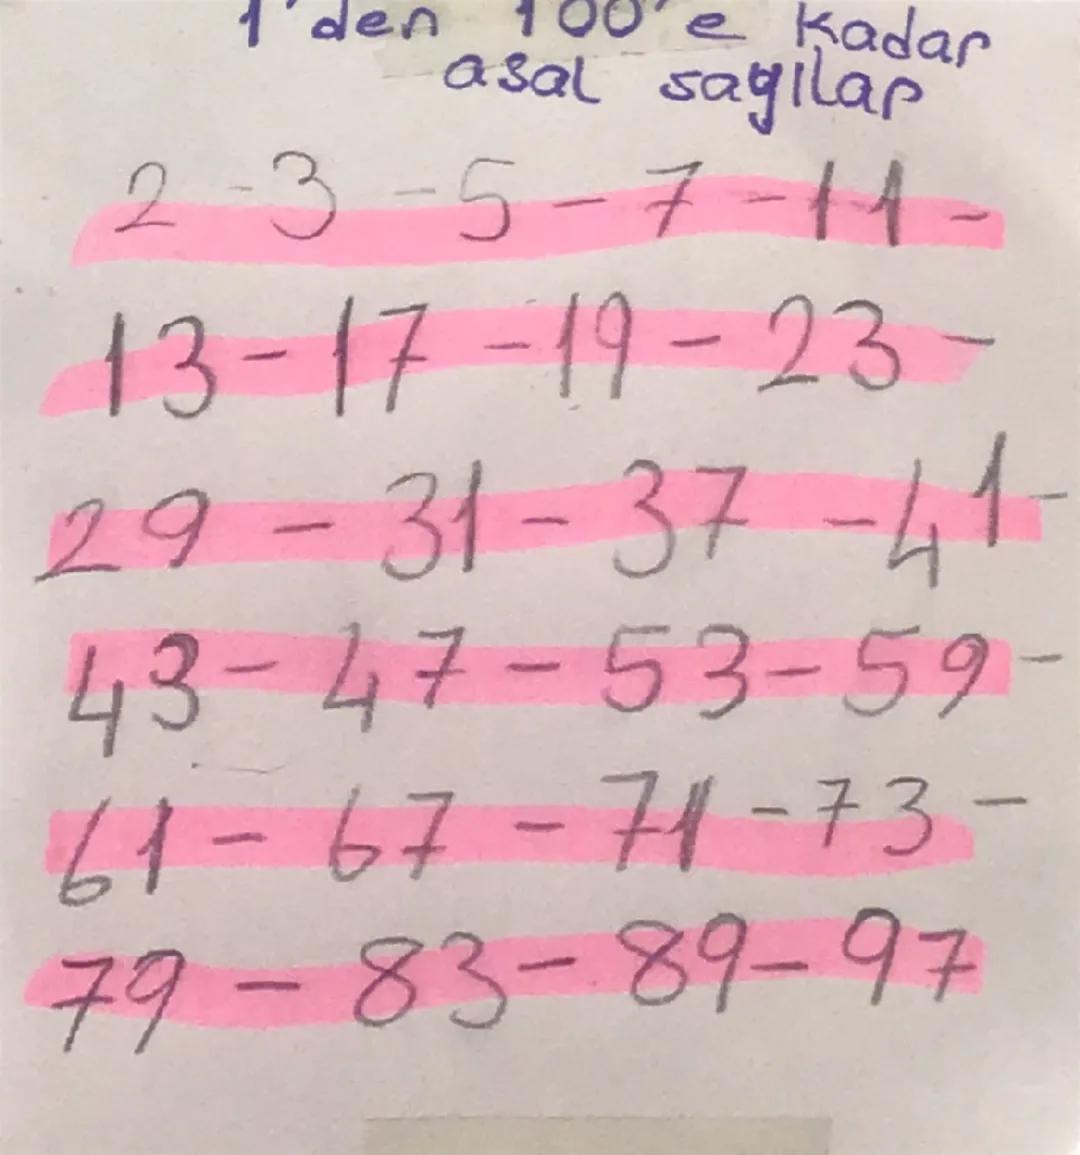 1'den 100'e kadar
asal sayılar
2 - 3 - 5 - 7 - 11 -
13 - 17 - 19 - 23 -
29 - 31 - 37 - 41 -
43 - 47 - 53 - 59 -
61 - 67 - 71 - 73 -
79 - 83 - 89 - 97